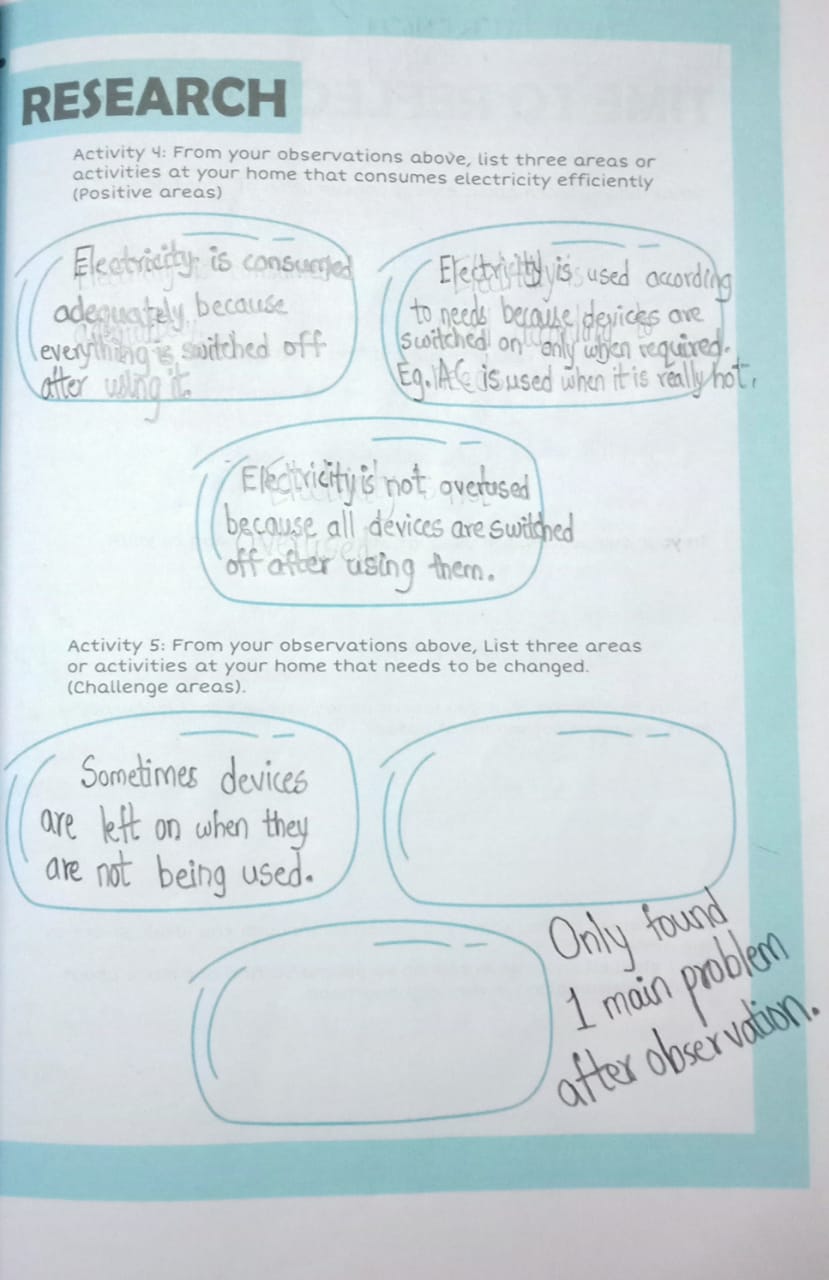 RESEARCH
Activity 4: From your observations above, list three areas or
activities at your home that consumes electricity efficiently
(Positive areas)
Electricity is consumed
adequately because
everything is switched off
after using it.
Electricity is used according
to needs because devices are
switched on only when required.
Eg. AC is used when it is really hot.
Electricity is not overused
because all devices are switched
off after using them.
Activity 5: From your observations above, List three areas
or activities at your home that needs to be changed.
(Challenge areas).
Sometimes devices
are left on when they
are not being used.
Only found
1 main problem
after observation.